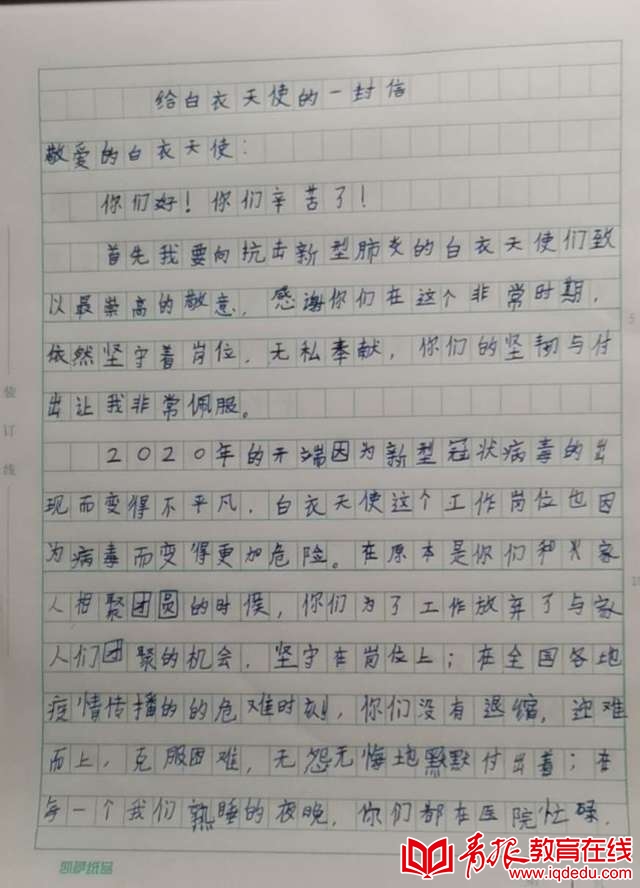 给白衣天使的一封信
敬爱的白衣天使：
你们好！你们辛苦了！
首先我要向抗击新型肺炎的白衣天使们致
以最崇高的敬意，感谢你们在这个非常时期，
依然坚守着岗位，无私奉献，你们的坚韧与付
出让我非常佩服。
2020年的开端因为新型冠状病毒的出
现而变得不平凡，白衣天使这个工作岗位也因
为病毒而变得更加危险。在原本是你们和家
人相聚团员的时候，你们为了工作放弃了与家
人们团聚的机会，坚守在岗位上；在全国各地
疫情传播的的危难时刻，你们没有退缩，迎难
而上，克服困难，无怨无悔地默默付出着；在
每一个我们熟睡的夜晚，你们都在医院忙碌，
装
订
线
5
凯萨纸品
青报教育在线
www.iqdedu.com